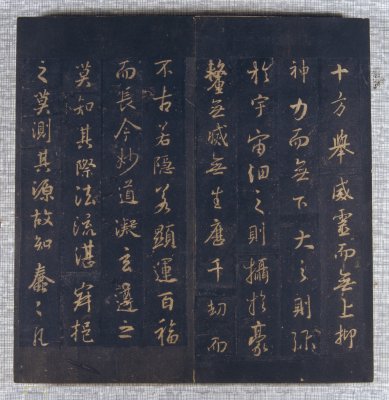 十方舉威靈而無上抑
神力而無下大之則弥
於宇宙細之則攝於豪
釐無滅無生歷千劫而
不古若隱若顯運百福
而長今妙道凝玄遵之
莫知其際法流湛寂挹
之莫測其源故知蠢〻凡